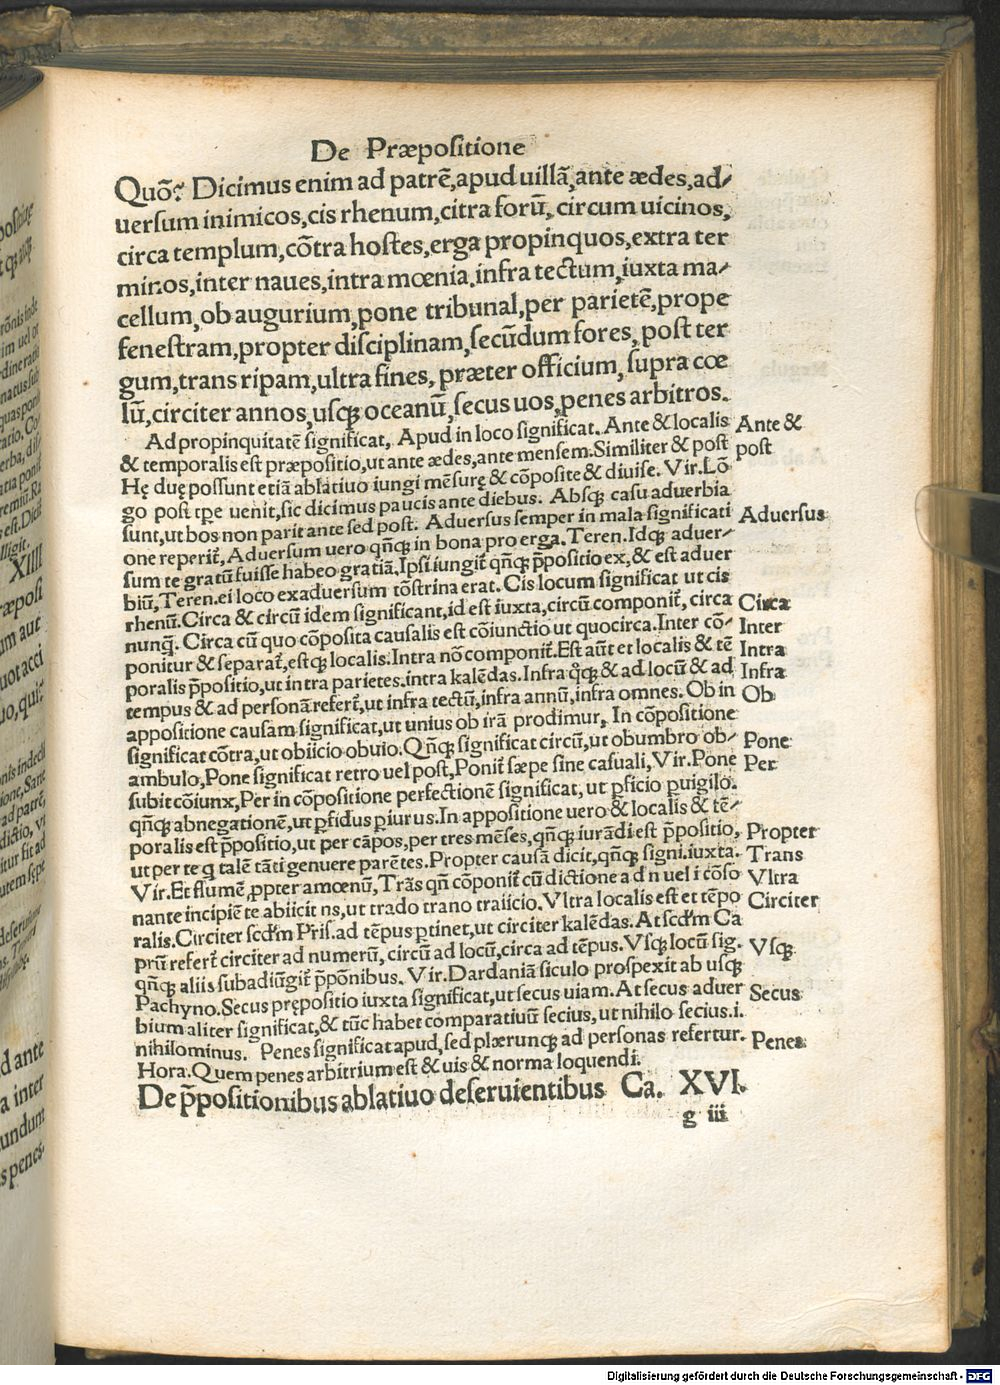 De Præpositione
Quõ? Dicimus enim ad patrẽ,apud uillã,ante ædes,ad/
uersum inimicos,cis rhenum,citra forũ, circum uicinos,
circa templum,cõtra hostes,erga propinquos,extra ter
minos,inter naues,intra mœnia,infra tectum,iuxta ma/
cellum,ob augurium,pone tribunal,per parietẽ,prope
fenestram,propter disciplinam,secũdum fores, post ter
gum,trans ripam,ultra fines, præter officium, supra cœ
lũ,circiter annos,usq; oceanũ,secus uos,penes arbitros.
Ad propinquitatẽ significat, Apud in loco significat. Ante & localis
Ante &
& temporalis est præpositio,ut ante ædes,ante mensem.Similiter & post
post
Hę duę possunt etiã ablatiuo iungi mẽsurę & cõposite & diuise. Vir. Lõ
go post tp̃e uenit,sic dicimus paucis ante diebus. Absq; casu aduerbia
sunt,ut bos non parit ante sed post. Aduersus semper in mala significati
Aduersus
one reperit̃, Aduersum uero qñq; in bona pro erga. Teren.Idq; aduer/
sum te gratũ fuisse habeo gratiã.Ipsi iungit̃ qñq; p̃positio ex, & est aduer
biũ, Teren.ei loco exaduersum tõstrina erat. Cis locum significat ut cis
rhenũ.Circa & circũ idem significant,id est iuxta,circũ componit̃, circa
Circa
nunq̃. Circa cũ quo cõposita causalis est cõiunctio ut quocirca.Inter cõ/
Inter
ponitur & separat̃,estq; localis.Intra nõ componit̃.Est aũt et localis & tẽ
Intra
poralis p̃positio,ut intra parietes.intra kalẽdas.Infra q̃q; & ad locũ & ad
Infra
tempus & ad personã refert̃,ut infra tectũ,infra annũ,infra omnes. Ob in
Ob
appositione causam significat,ut unius ob irã prodimur, In cõpositione
significat cõtra,ut obiicio obuio.Qñq; significat circũ,ut obumbro ob/
Pone
ambulo,Pone significat retro uel post,Ponit̃ sæpe sine casuali, Vir.Pone
Per
subit cõiunx,Per in cõpositione perfectionẽ significat, ut p̱ficio p̱uigilo.
qñq; abnegationẽ,ut p̱fidus p̱iurus.In appositione uero & localis & tẽ/
poralis est p̃positio,ut per cãpos,per tres mẽses,qñq; iurãdi est p̃positio,
Propter
ut per te q̱ talẽ tãti genuere parẽtes.Propter causã dicit,qñq; signi.iuxta.
Trans
Vir.Et flumẽ p̱pter amœnũ, Trãs qñ cõponit̃ cũ dictione a d n uel i cõso
Vltra
nante incipiẽte abiicit ns,ut trado trano traiicio.Vltra localis est et tẽpo
Circiter
ralis.Circiter scd̃m Pris.ad tẽpus p̱tinet,ut circiter kalẽdas.At scd̃m Ca
prũ refert̃ circiter ad numerũ, circũ ad locũ,circa ad tẽpus.Vsq; locũ sig.
Vsq;
qñq; aliis subadiũgit̃ p̃põnibus. Vir.Dardaniã siculo prospexit ab usq;
Pachyno.Secus prępositio iuxta significat,ut secus uiam.At secus aduer
Secus
bium aliter significat,& tũc habet comparatiuũ secius,ut nihilo secius.i.
nihilominus. Penes significat apud,sed plærunq; ad personas refertur.
Penes
Hora.Quem penes arbitrium est & uis & norma loquendi.
De p̃positionibus ablatiuo deseruientibus Ca. XVI.
g iii
Digitalisierung gefördert durch die Deutsche Forschungsgemeinschaft - DFG